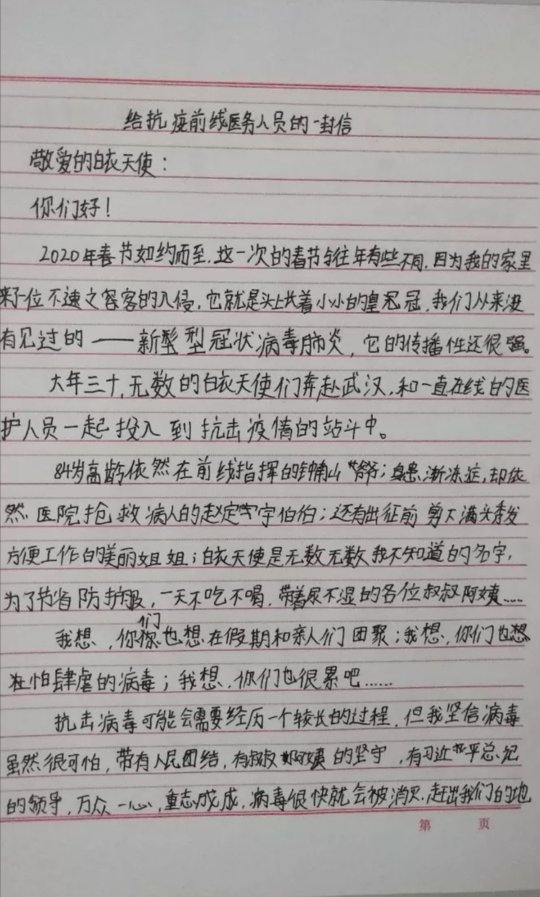 给抗疫前线医务人员的一封信
敬爱的白衣天使：
你们好！
2020年春节如约而至，这一次的春节与往年有些不同，因为我的家里
来了一位不速之客的入侵，它就是头上长着小小的皇冠，我们从来没
有见过的——新型冠状病毒肺炎，它的传播性还很强。
大年三十，无数的白衣天使们奔赴武汉，和一直在线的医
护人员一起投入到抗击疫情的站斗中。
84岁高龄依然在前线指挥的钟南山爷爷；身患渐冻症，却依
然医院抢救病人的赵定宇伯伯；还有出征前剪下满头秀发
方便工作的美丽姐姐；白衣天使是无数无数我不知道的名字，
为了节省防护服，一天不吃不喝，带着尿不湿的各位叔叔阿姨……
我想，你们也想在假期和亲人们团聚；我想，你们也想
在怕肆虐的病毒；我想，你们也很累吧……
抗击病毒可能会需要经历一个较长的过程，但我坚信病毒
虽然很可怕，带有人民团结，有叔叔阿姨的坚守，有习近平总记
的领导，万众一心，重志成成，病毒很快就会被消灭，赶出我们的地
第 页